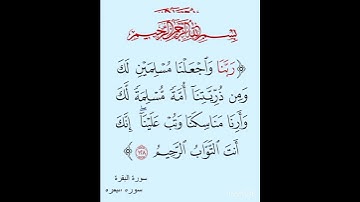 بِسْمِ ٱللَّهِ ٱلرَّحْمَٰنِ ٱلرَّحِيمِ
﴿ رَبَّنَا وَٱجْعَلْنَا مُسْلِمَيْنِ لَكَ
وَمِن ذُرِّيَّتِنَآ أُمَّةً مُّسْلِمَةً لَّكَ
وَأَرِنَا مَنَاسِكَنَا وَتُبْ عَلَيْنَآ ۖ إِنَّكَ
أَنتَ ٱلتَّوَّابُ ٱلرَّحِيمُ ١٢٨ ﴾
سورة البقرة